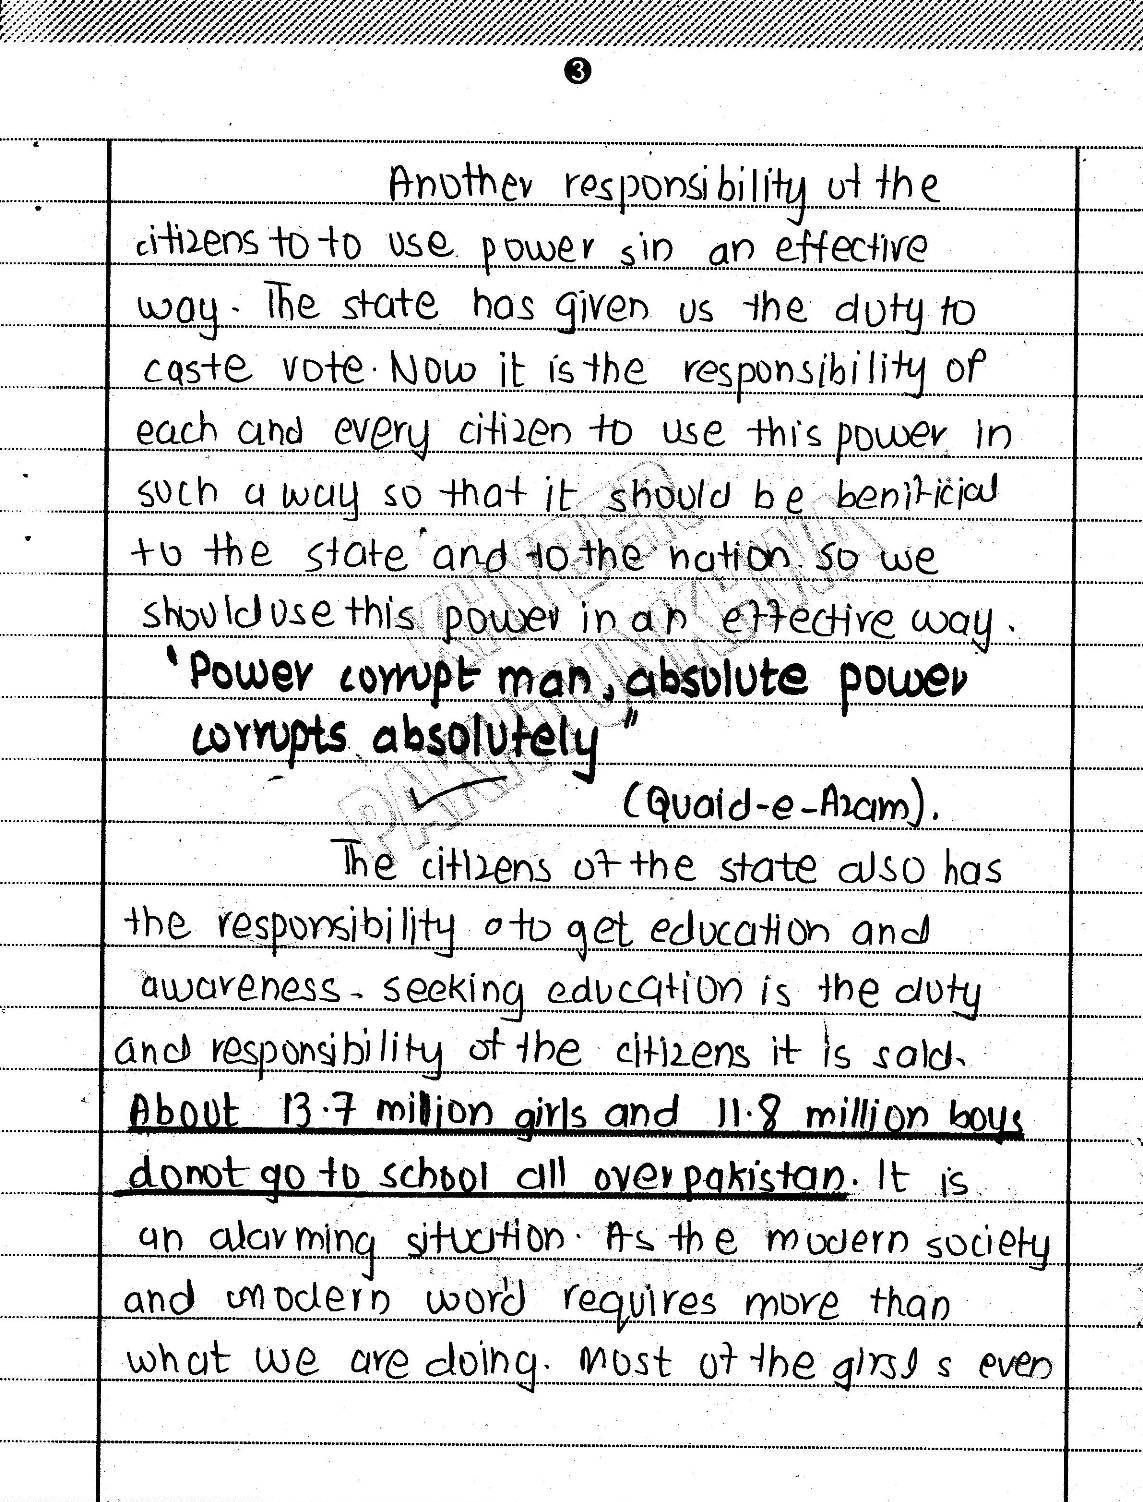 3
Another responsibility of the
citizens to to use power sin an effective
way. The state has given us the duty to
caste vote. Now it is the responsibility of
each and every citizen to use this power in
such a way so that it should be benificial
to the state and to the nation. So we
should use this power in an effective way.
"Power corrupt man, absolute power
corrupts absolutely"
(Quaid-e-Azam).
The citizens of the state also has
the responsibility o to get education and
awareness. seeking education is the duty
and responsibility of the citizens it is said.
About 13.7 million girls and 11.8 million boys
donot go to school all over pakistan. It is
an alarming situation. As the modern society
and modern word requires more than
what we are doing. Most of the girsl s even
KHYBER
PAKHTUNKHWA